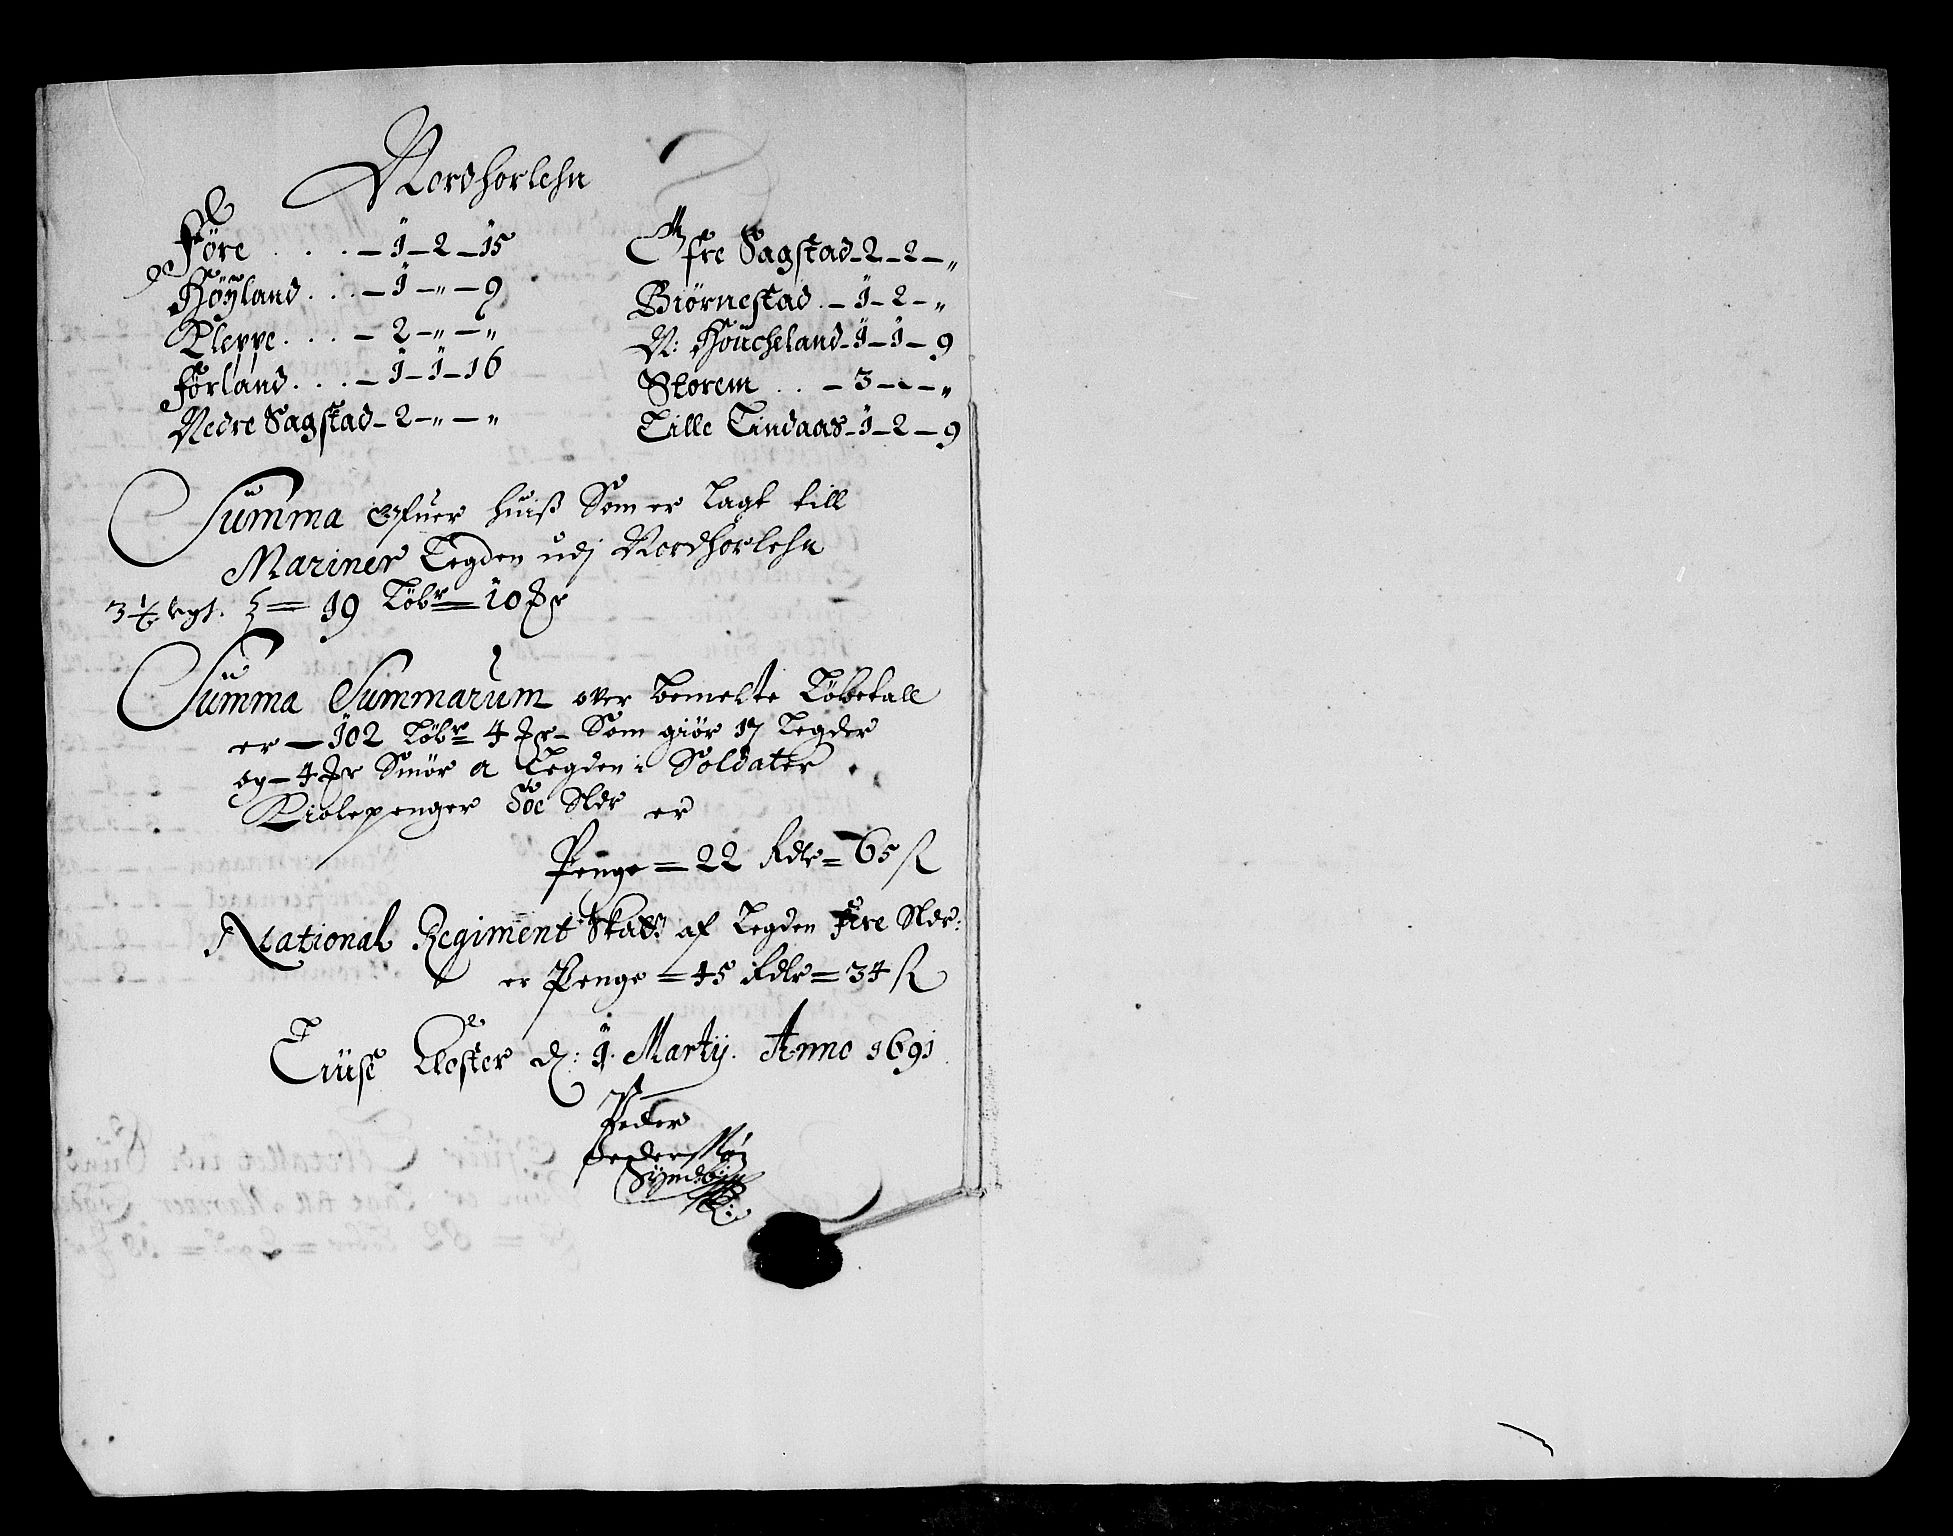 Nordhorlehn
Före . . . . – 1 – 2 – 15
Höyland . . . – 1 – „ – 9
Kleppe . . . – 2 – „ – „
Förland . . . – 1 – 1 – 16
Nedre Sagstad – 2 – „ – „
Øfre Sagstad – 2 – 2 – „
Biörnestad . – 1 – 2 – „
N: Houcheland – 1 – 1 – 9
Storem . . – 3 – „ – „
Lille Lindaas – 1 – 2 – 9
Summa Offuer huiß Som er Lagt till
Mariner Legden udj Nordhorlehn
= 19 Löbr = 10
Summa Summarum over bemelte Löbetall
er – 102 Löbr 4 – Som giör 17 Legder
og – 4 Smör a Legden i Soldater
Kiolepenger er
Penge = 22 Rdlr = 65 ß
National Regiment Skatt af Legden Fire
er Penge = 45 Rdlr = 34 ß
Liuse Closter d: 1. Martij. Anno 1691
Peder
Pederssøn